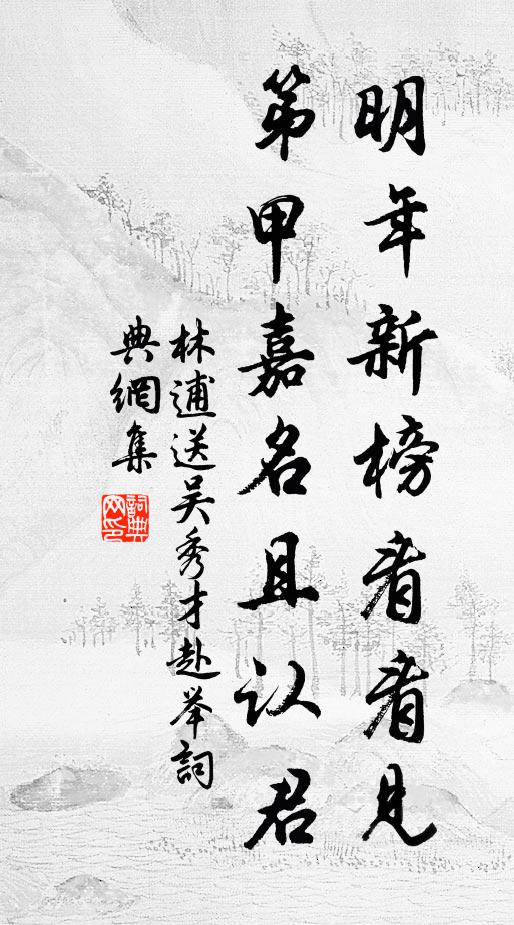 明年新榜看看見
第甲嘉名且认君
林逋送吴秀才赴举詞
典網集
詞典网印